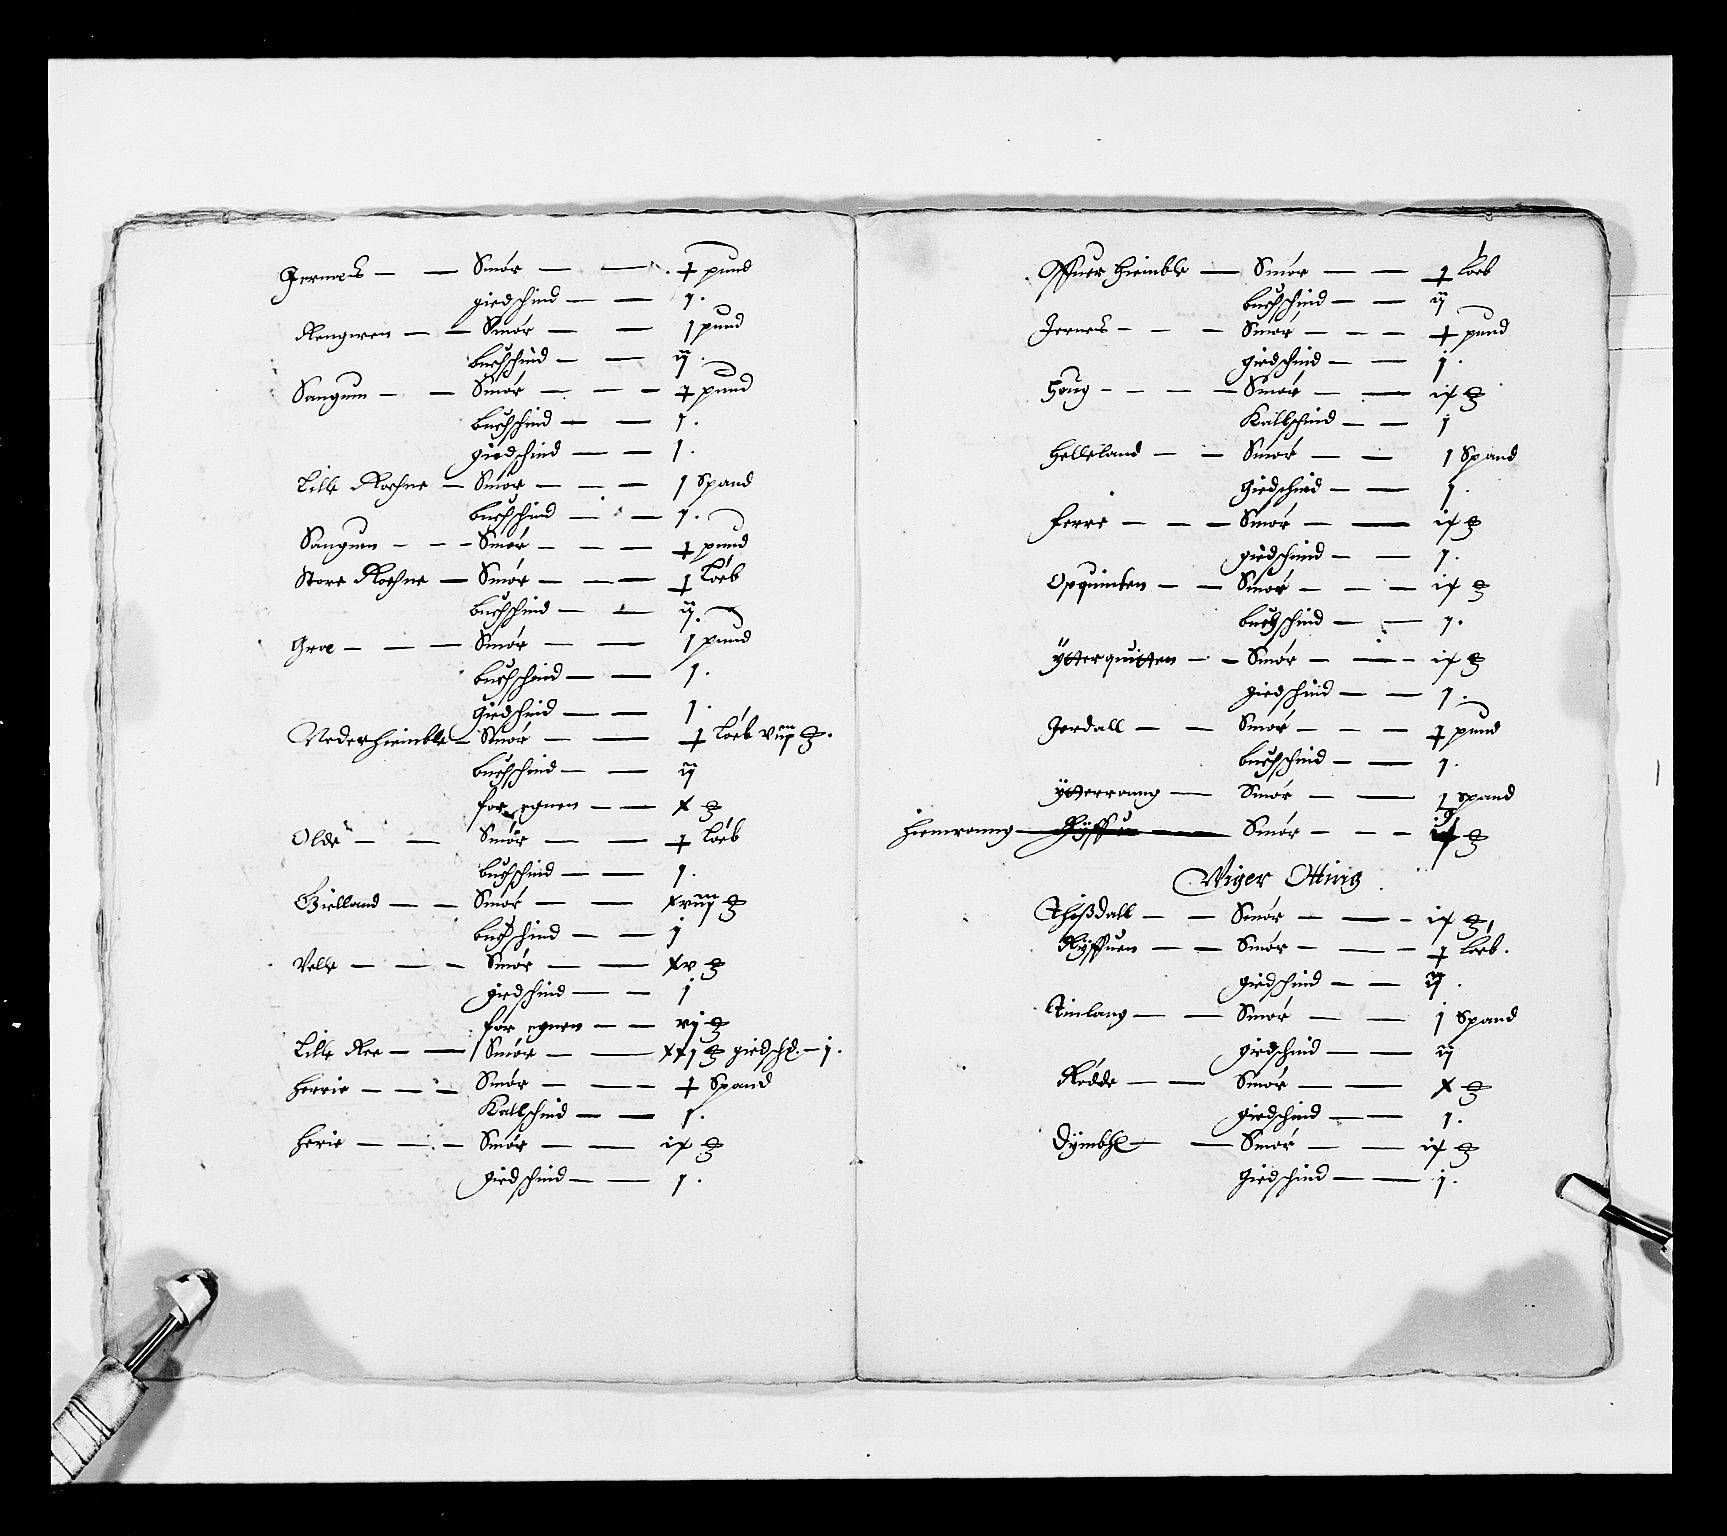 Jermes — — Smør — — . ɟ pund
giedschind — — 1.
Rengwen — — Smør — — 1 pund
buchschind — — ij.
Sangum — — Smør — — — ɟ pund
buchschind — — 1.
giedschind — — 1.
Lille Rochne — Smør — — — 1 Spand
buchschind — — 1.
Sangum — — — Smør — — — ɟ pund
Store Rochne — Smør — — — ɟ Løeb
buchschind — — ij.
Groe — — — Smør — — 1 pund
buchschind — — 1.
giedschind — — 1.
Nederhiemble — Smør — — ɟ Løeb viiij ℔.
buchschind — — ij
for egnen — — x ℔
Olde — — Smør — — ɟ Løeb
buchschind — — 1.
Gielland — — Smør — — xviij ℔
buchschind — — j
Velle — — — Smør — — xv ℔
giedschind — — j
for egnen — — vj ℔
Lille Ree — — Smør — — xxj ℔ giedsch. — j.
Herrie — — — Smør — — — ɟ Spand
Kallschind — — 1.
Herie — — — Smør — — ix ℔
giedschind — — 1.
Offuer hiemble — Smør — — ɟ Løeb
buchschind — — ij
Jernes — — — Smør — — — ɟ pund
giedschind — — j.
Houg — — — — Smør — — ix ℔
Kallschind — — j
Helleland — — Smør — — 1 Spand
giedschind — — 1.
Ferre — — — Smør — — ix ℔
giedschind — — 1.
Opquinten — — Smør — — — ix ℔
buchschind — — 1.
Ytterquitten — — Smør — — — ix ℔
giedschind — — 1.
Jordall — — Smør — — — ɟ pund
buchschind — — 1.
Ytterroung — Smør — — 1 Spand
Hiemroung — Ryffuen — Smør — — — ℔
Viger Otting
Thoßdall — — Smør — — — ix ℔
Ryffuen — — Smør — — — ɟ Løeb.
giedschind — — ij.
Tinlang — — Smør — — 1 Spand
giedschind — — ij
Rødde — — Smør — — x ℔
giedschind — — 1.
— — Smør — — ix ℔
giedschind — — j.